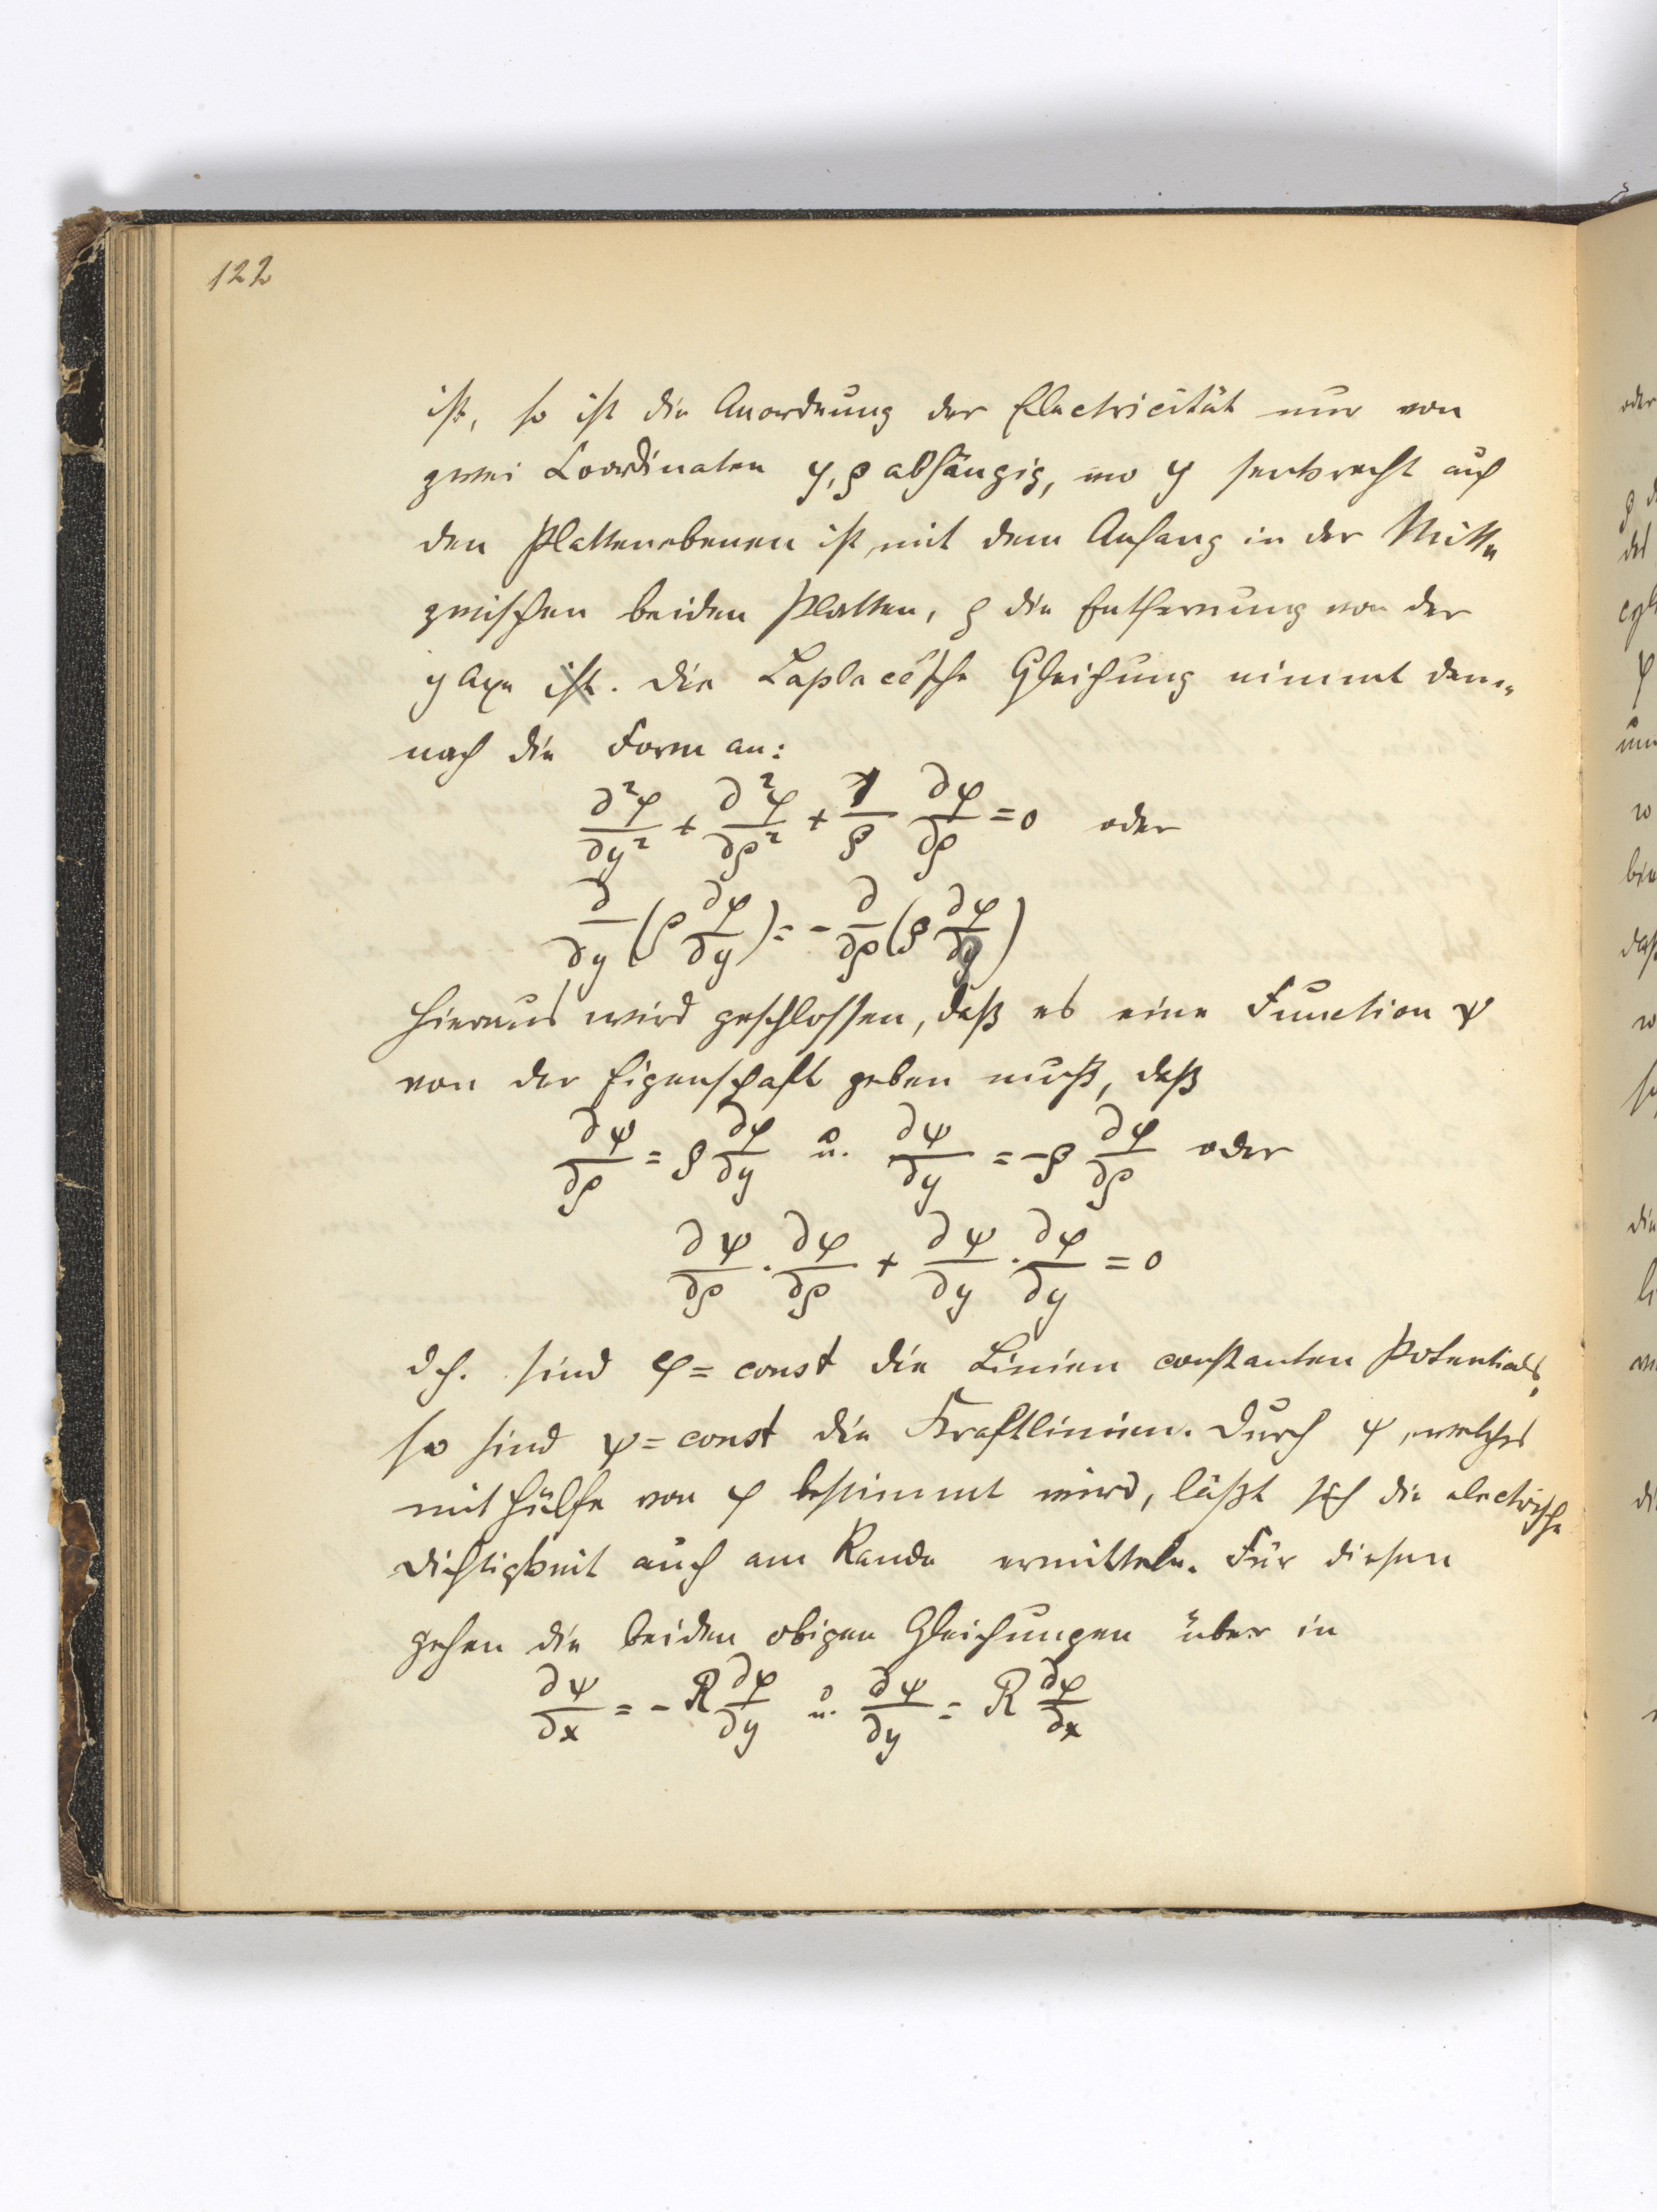 122
ist, so ist die Anordnung der Electricität nur von
zwei Coordinaten y, ρ abhängig, wo y senkrecht auf
den Plattenebenen ist, mit dem Anfang in der Mitte
zwischen beiden Platten, ρ die Entfernung von der
y Axe ist. Die Laplace'sche Gleichung nimmt dem-
nach die Form an:
∂²φ/∂y² + ∂²φ/∂ρ² + 1/ρ ∂φ/∂ρ = 0 oder
∂/∂y (ρ ∂φ/∂y) = - ∂/∂ρ (ρ ∂φ/∂y)
Hieraus wird geschlossen, daß es eine Function ψ
von der Eigenschaft geben muß, daß
∂ψ/∂ρ = ρ ∂φ/∂y u. ∂ψ/∂y = -ρ ∂φ/∂ρ oder
∂ψ/∂ρ · ∂φ/∂ρ + ∂ψ/∂y · ∂φ/∂y = 0
dh. sind φ = const die Linien constanten Potentials,
so sind ψ = const die Kraftlinien. Durch ψ, welches
mit Hülfe von φ bestimmt wird, läßt sich die electrische
Dichtigkeit auch am Rande ermitteln. Für diesen
gehen die beiden obigen Gleichungen über in
∂ψ/∂x = - R ∂φ/∂y u. ∂ψ/∂y = R ∂φ/∂x